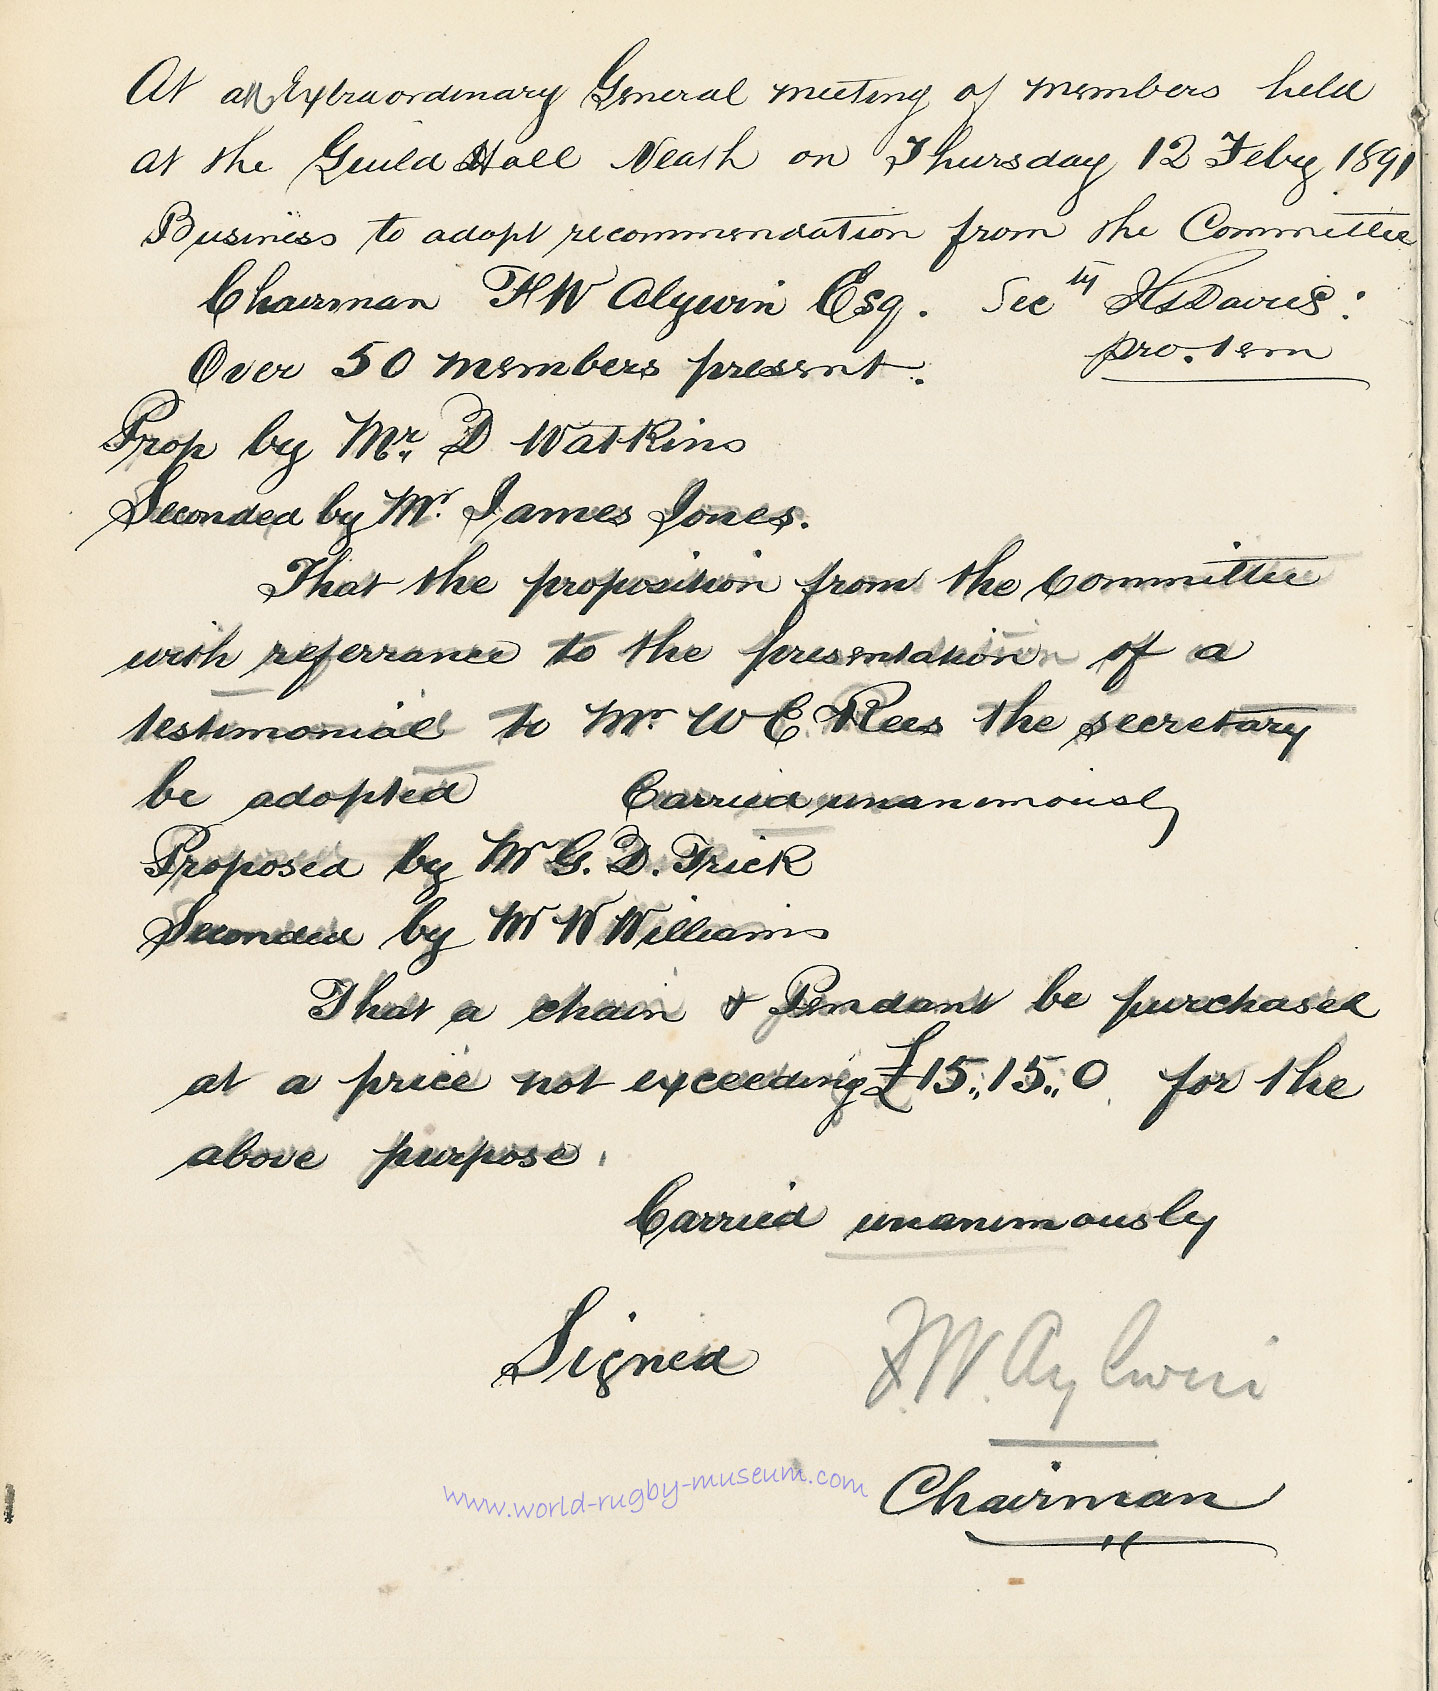 At an Extraordinary General meeting of members held
at the Guild Hall Neath on Thursday 12 Feby 1891
Business to adopt recommendation from the Committee
Chairman F W Alywin Esq. Secty H S Davies:
pro. tem
Over 50 members present.
Prop by Mr D Watkins
Seconded by Mr James Jones.
That the proposition from the Committee
with referrance to the presentation of a
testimonial to Mr W E Rees the secretary
be adopted Carried unanimously
Proposed by Mr G. D. Trick
Seconded by Mr W Williams
That a chain & Pendant be purchased
at a price not exceeding £15,,15,,0 for the
above purpose.
Carried unanimously
Signed F. W. Aylwin
Chairman
www.world-rugby-museum.com